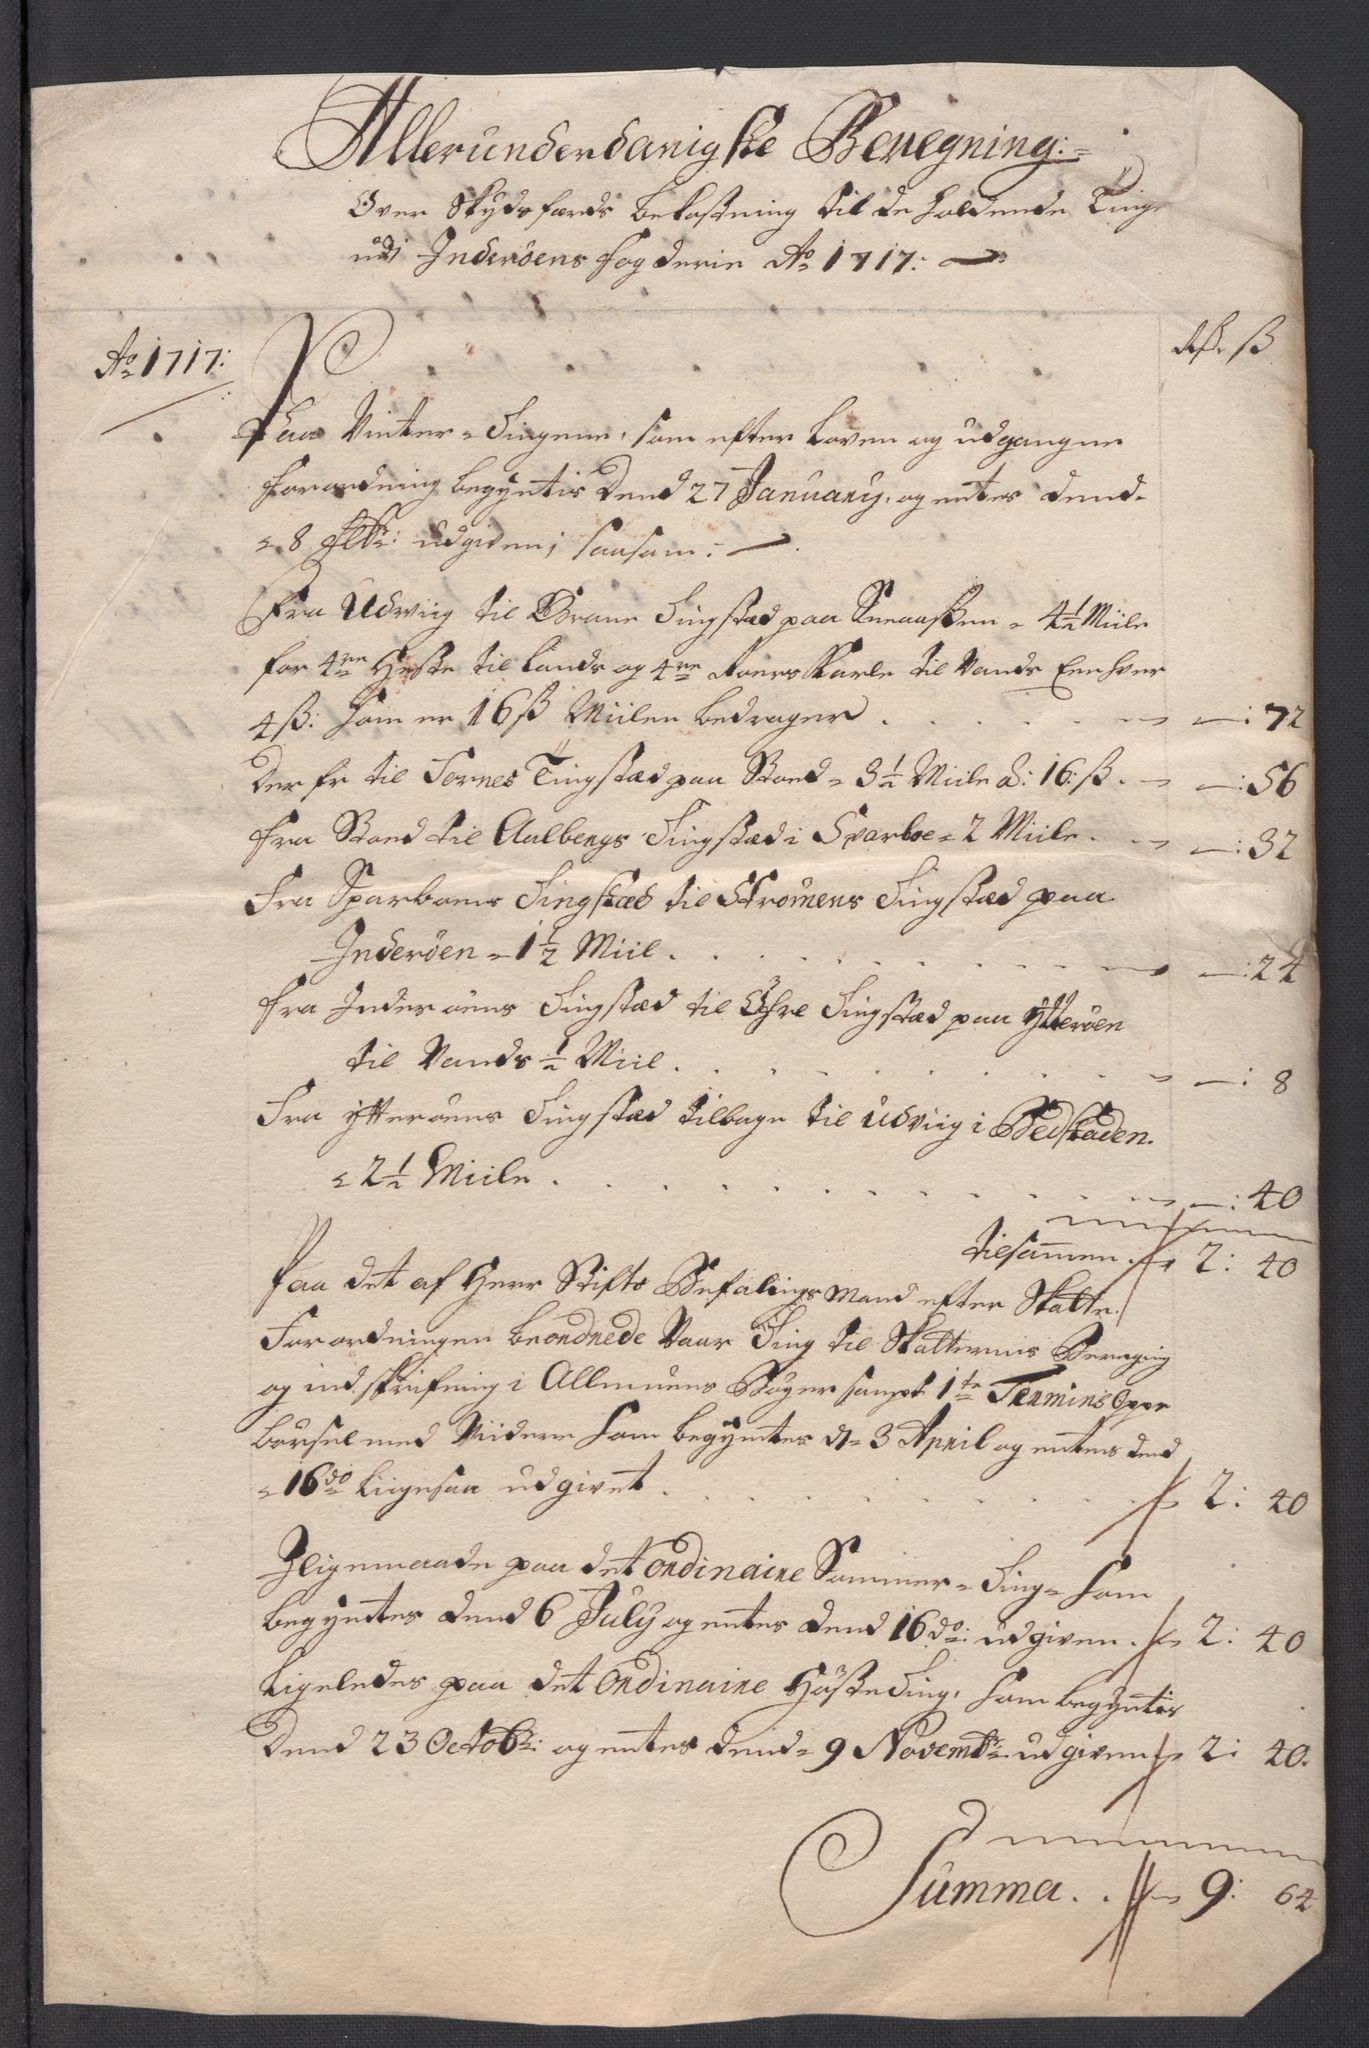 Allerunderdanigste Beregning:
Over Skyds færds bekostning til de holdende Ting
udi Inderöens fogderie Ao 1717:
Ao 1717:
Rdr ß
Paa Vinter-Tingene, som efter Loven og udgangne
forordning begyntis Dend 27 January, og entes dend
8 Febr: udgiven; saasom:
Fra Udviig til Brane Tingstæd paa Sneaasen - 4½ Miile
for 4re Heste til Lands og 4re Roers Karle til Vands Eenhver
4 ß: som er 16 ß Miilen bedrager . . . —: 72
Der fr til Fornes Tingstæd paa Stoed - 3½ Miile a: 16: ß. —: 56
fra Stoed til Aalbergs Tingstæd i Sparboe - 2 Miile. —: 32
Fra Sparboens Tingstæd til Strömens Tingstæd paa
Inderöen - 1½ Miil . . . —: 24
fra Inderöens Tingstæd til Tingstæd paa Ytteröen
til Vands ½ Miil . . . —: 8
Fra ytteröens Tingstæd tilbage til Udviig i Bedstaden.
2½ Miile . . . —: 40
tilsammen 2: 40
Paa det af Herr Stifts Befalings Mand efter Skatte
Forordningen beordrede Vaar Ting til Skatternis Beregning
og ind skrifning i Allmuens Bøger sampt 1te Termins Oppe
börsel med Viidere som begyntes d- 3 April og entes dend
16do liigesaa udgivet . . . 2: 40
Iligemaade paa det ordinaire Sommer-Ting - som
begyntes dend 6 July og entes dend 16 do: udgiven . 2: 40
Ligeledes paa det Ordinaire HösteTing, som begyntis
dend 23 Octobr: og entes dend 9 Novembr: udgiven 2: 40.
Summa . . 9: 64